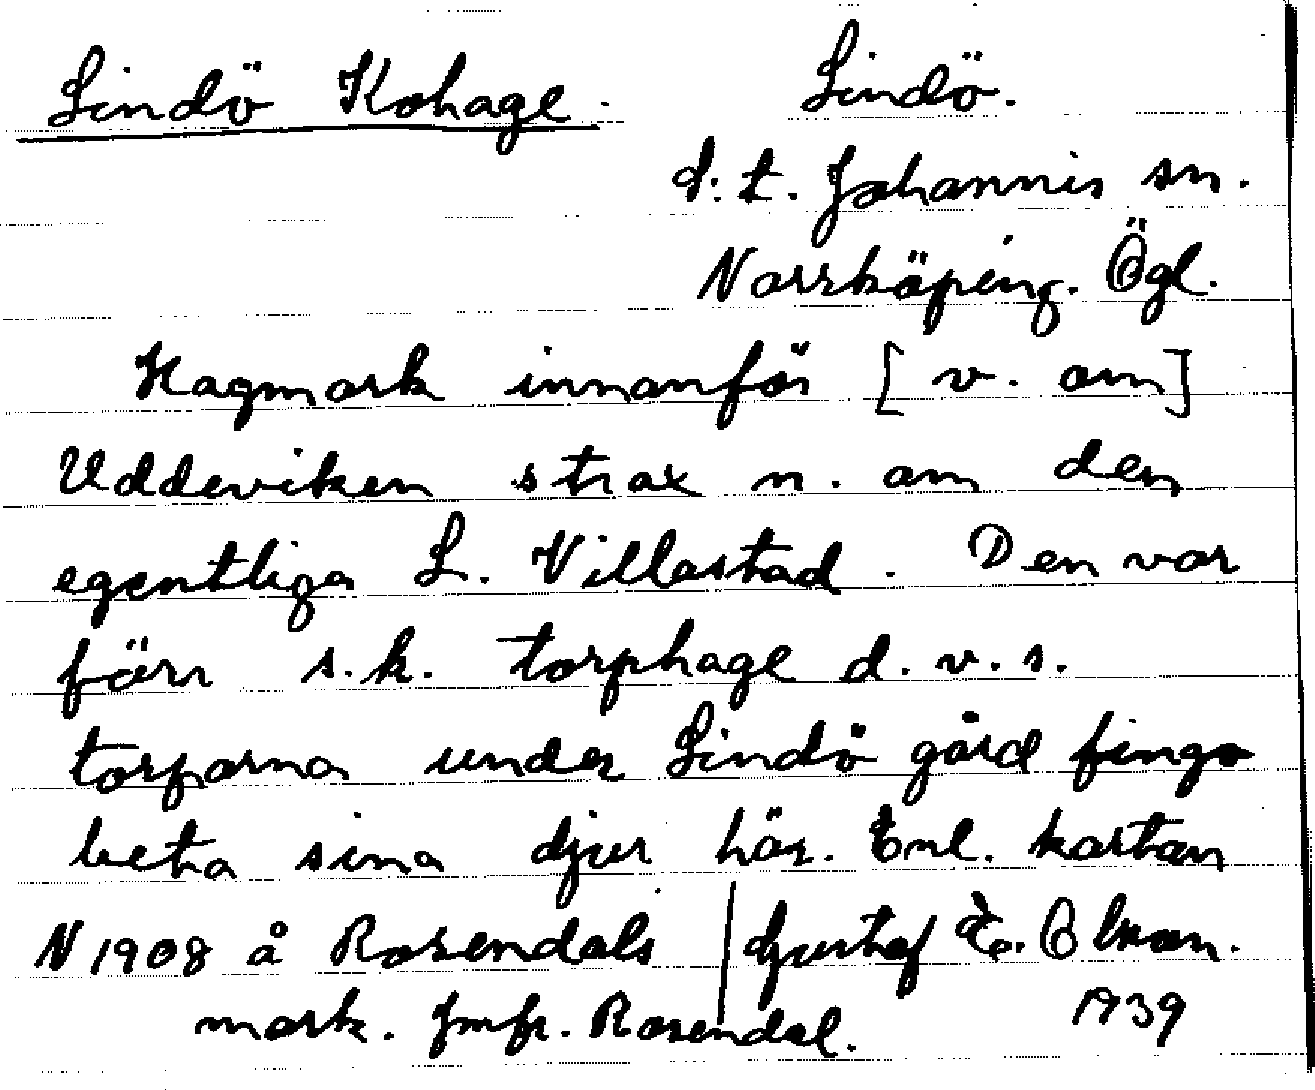 Lindö Kohage. Lindö.
d. t. Johannis sn.
Norrköping. Ögl.
Hagmark innanför [v. om]
Uddeviken strax n. om den
egentliga L. Villastad. Den var
förr s.k. torphage d.v.s.
torparna under Lindö gård fingo
beta sina djur här. Enl. kartan
N 1908 å Rosendals
mark. Jmfr. Rosendal.
Gustaf E. Olson.
1939